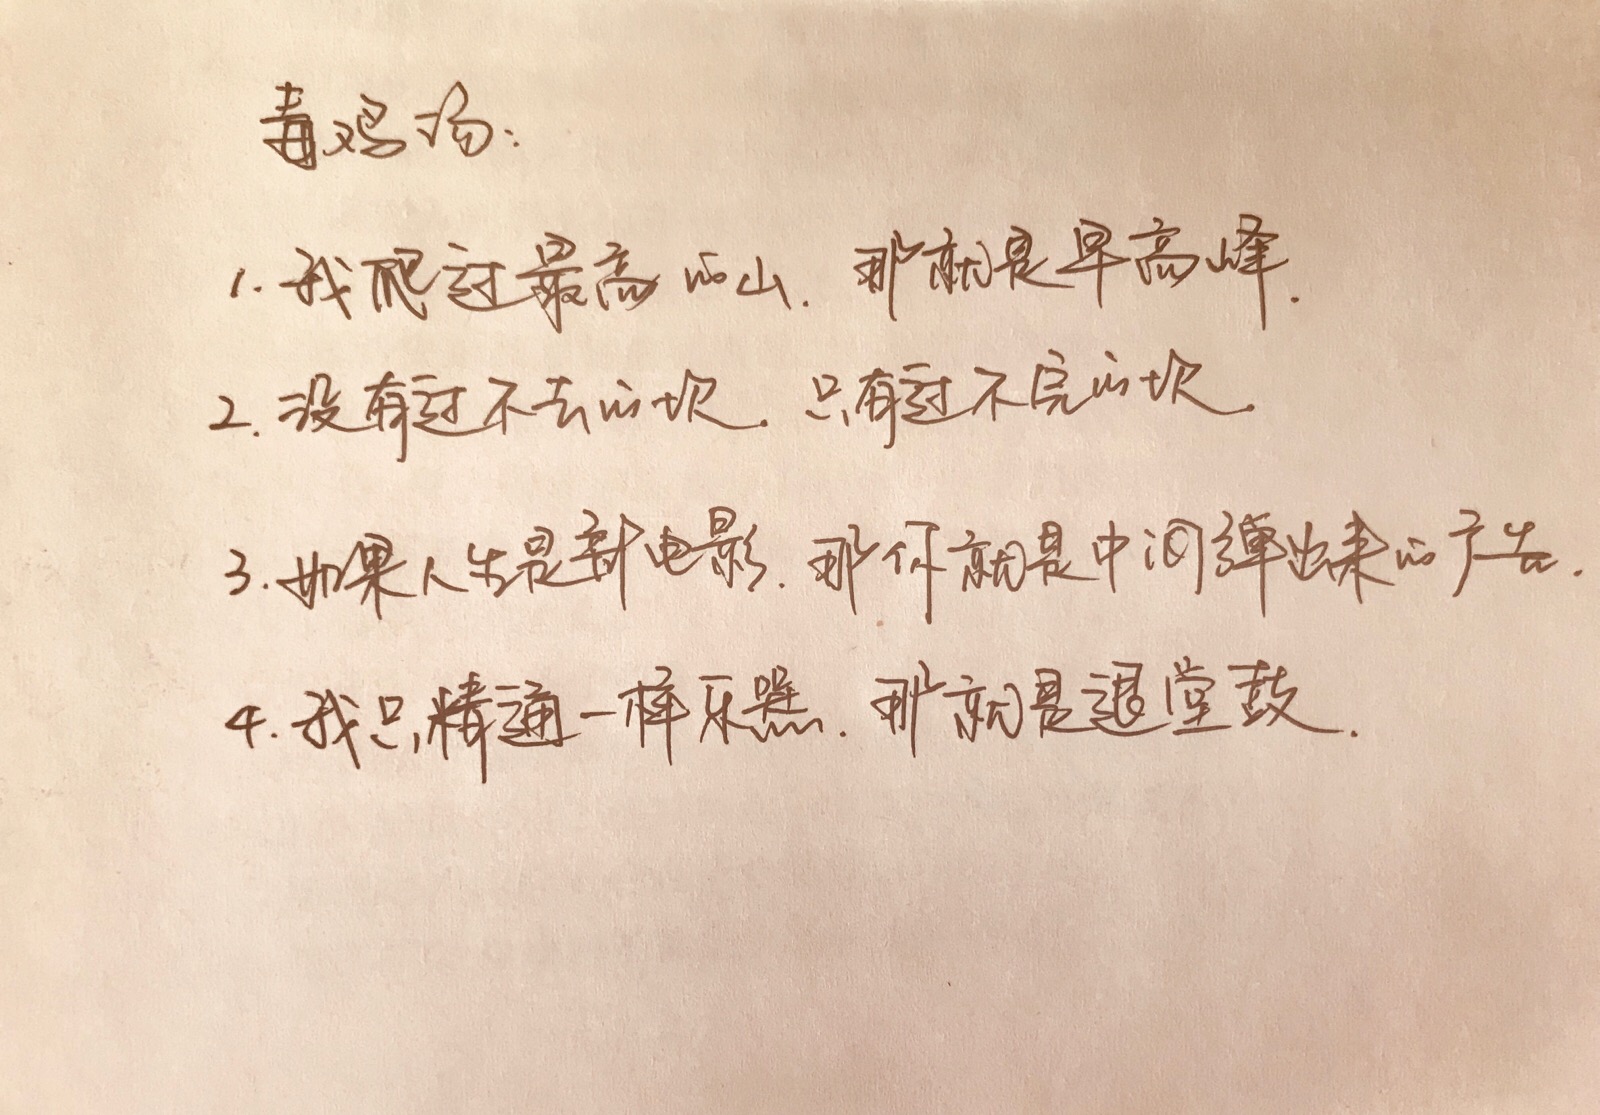 毒鸡汤：
1.我爬过最高的山.那就是早高峰.
2.没有过不去的坎.只有过不完的坎.
3.如果人生是部电影.那你就是中间弹出来的广告.
4.我只精通一样乐器.那就是退堂鼓.